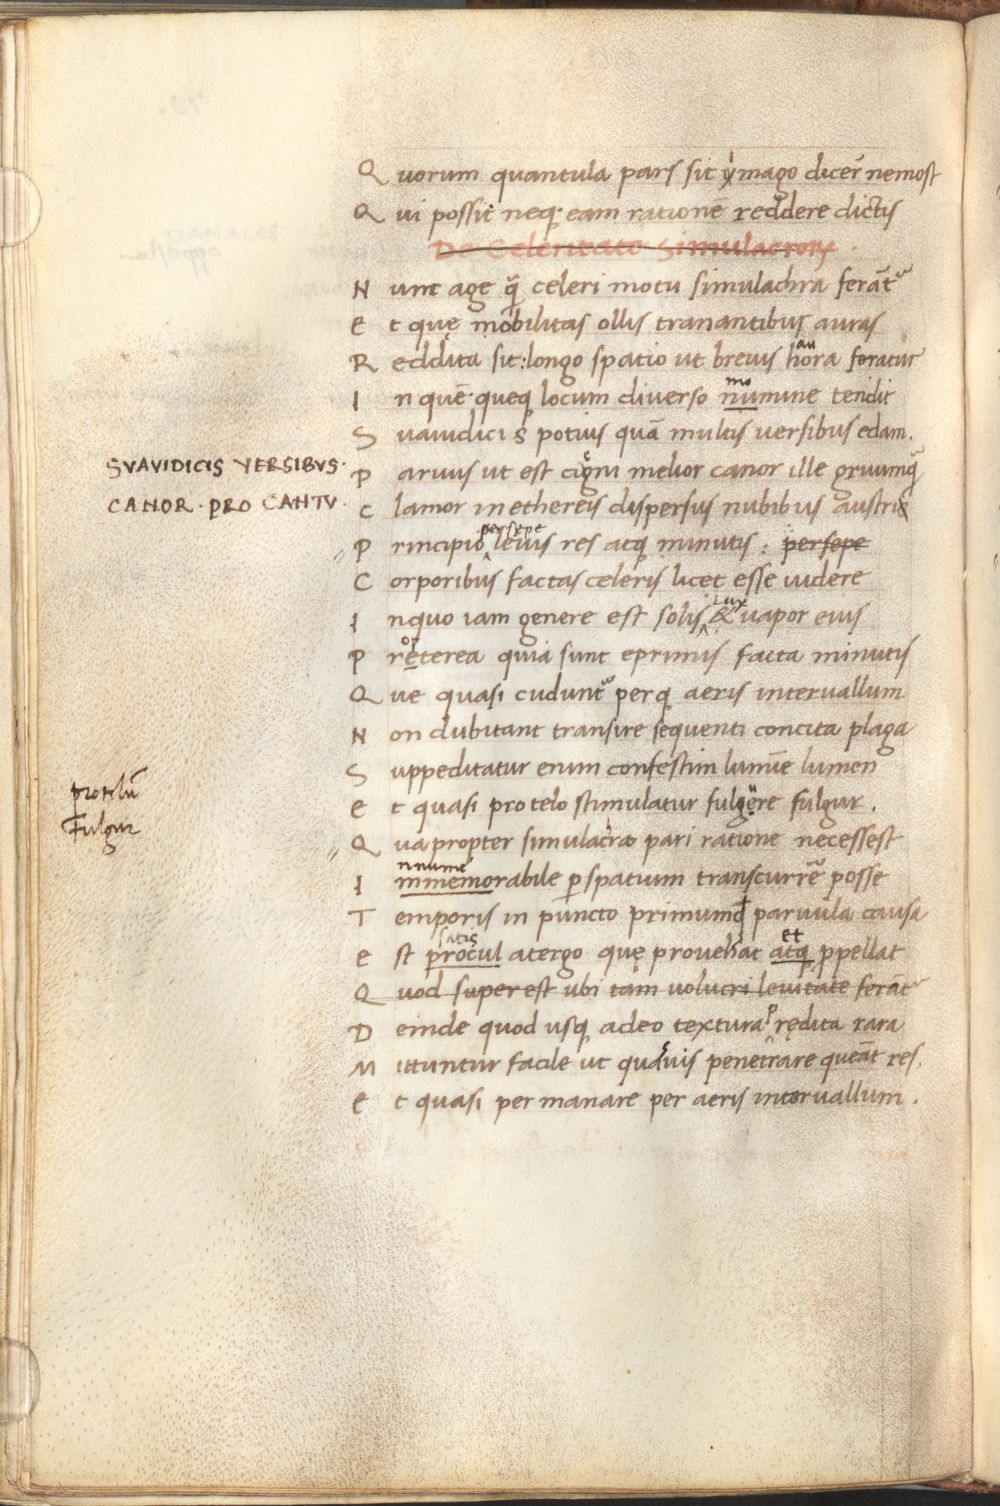 Quorum quantula pars sit ymago dicer̄ nemost
Qui possit neq; eam rationē reddere dictis
De Celeritate Simulacrorꝝ.
Nunc age q̄ celeri motu simulachra ferāt᷑
Et quę mobilitas ollis tranantibus auras
Reddita sit: longo spatio ut brevis hora feratur
au
In quē queq; locum diverso numine tendit
mo
Suavidicis potius quā multis versibus edam.
SVAVIDICIS VERSIBVS.
Parvus ut est cigni melior canor ille gruumq;
CANOR. PRO CANTV.
Clamor in ethereis dispersus nubibus austris
Principio levis res atq; minutis: persepe
persepe
Corporibus factas celeris licet esse videre
Inquo iam genere est solis & vapor eius
lux
Pręterea quia sunt eprimis facta minutis
op
Que quasi cudunt᷑ perq; aeris intervallum
Non dubitant transire sequenti concita plaga
Suppeditatur enim confestim lumīe lumen
protelū
Et quasi protelo stimulatur fulgere fulgur.
Fulgur
Quapropter simulacra pari ratione necessest
Inmemorabile ꝑ spatium transcurrēe posse
nnume
Temporis in puncto primumq; parvula causa
Est procul atergo quę provehat atq; ꝓpellat
satis
et
Quod superest ubi tam volucri levitate ferāt᷑
Deinde quod usq; adeo textura rędita rara
p
Mittuntur facile ut quāvis penetrare queāt res.
Et quasi permanare per aeris intervallum.